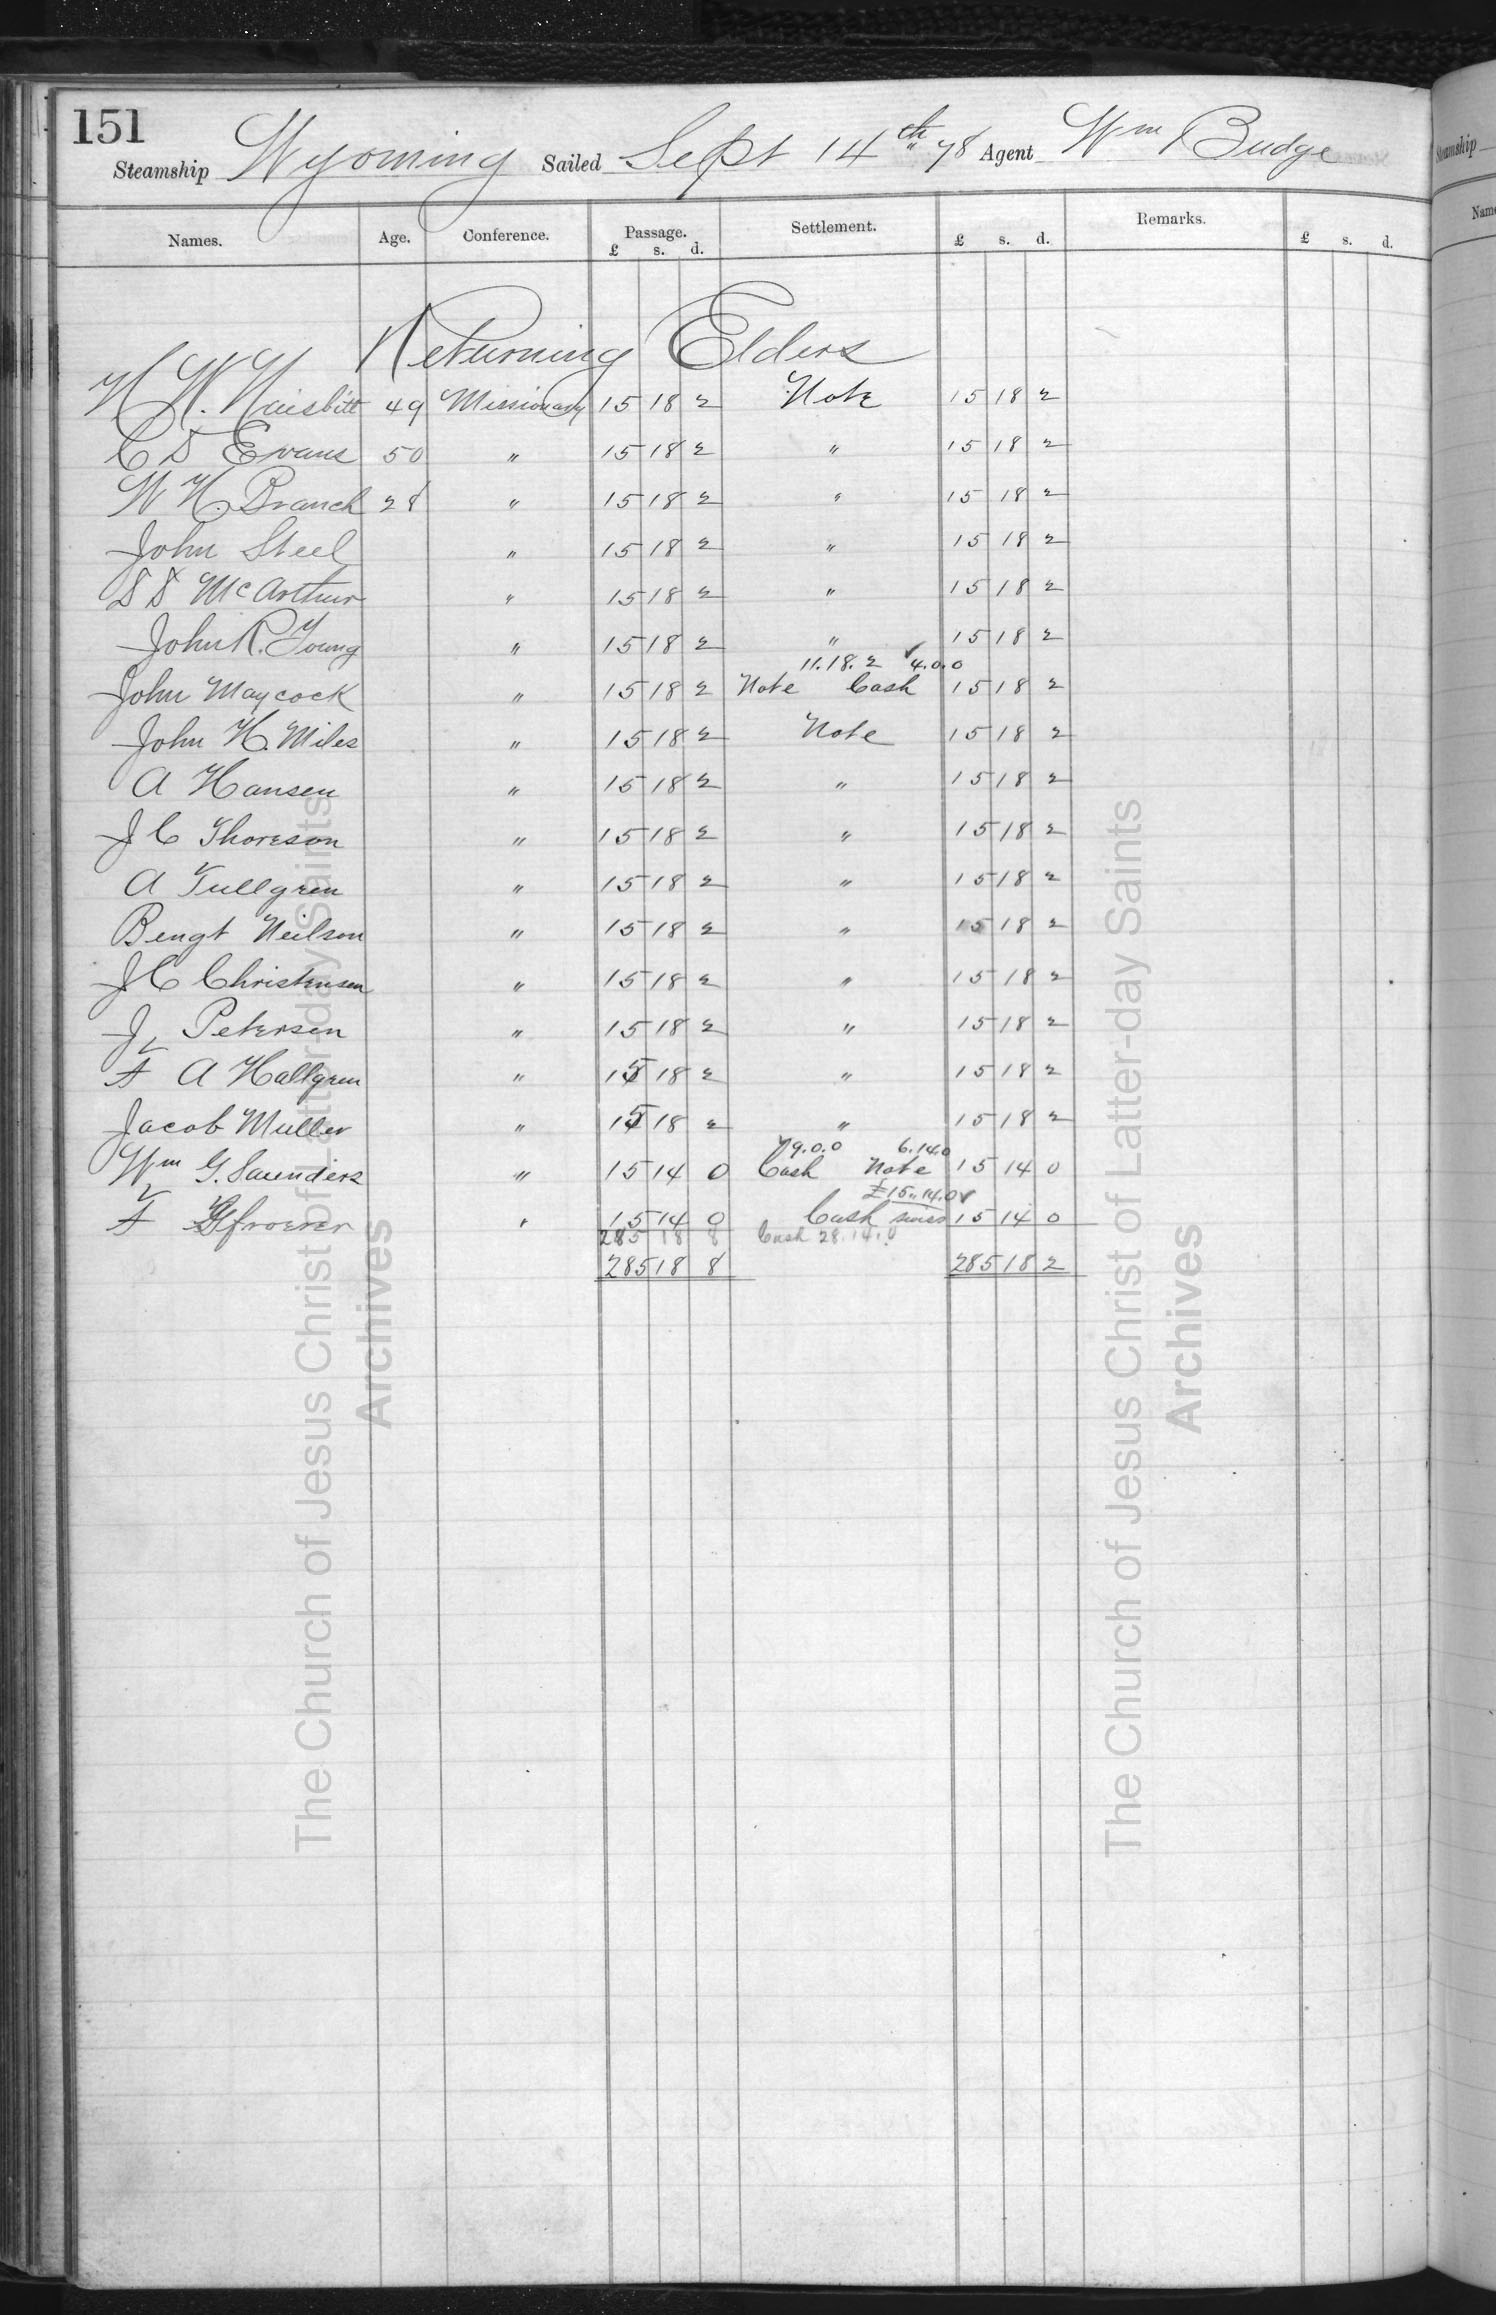 151
Steamship Wyoming Sailed Sept 14th " 78 Agent Wm Budge
Names. Age. Conference. Passage. £ s. d. Settlement. £ s. d. Remarks. £ s. d.
Returning Elders
H. W. Naisbitt 49 Missionary 15 18 2 Note 15 18 2
C D Evans 50 " 15 18 2 " 15 18 2
W H. Branch 28 " 15 18 2 " 15 18 2
John Steel " 15 18 2 " 15 18 2
D D McArthur " 15 18 2 " 15 18 2
John R. Young " 15 18 2 " 15 18 2
11.18.2 4.0.0
John Maycock " 15 18 2 Note Cash 15 18 2
John H. Miles " 15 18 2 Note 15 18 2
A Hansen " 15 18 2 " 15 18 2
J C Thoreson " 15 18 2 " 15 18 2
A Tullgren " 15 18 2 " 15 18 2
Bengt Neilson " 15 18 2 " 15 18 2
J C Christensen " 15 18 2 " 15 18 2
J Petersen " 15 18 2 " 15 18 2
A Hallgren " 15 18 2 " 15 18 2
Jacob Muller " 15 18 2 " 15 18 2
9.0.0 6.14.0
Wm G. Saunders " 15 14 0 Cash Note 15 14 0
£15.14.0
F Gfroerer " 15 14 0 Cash swiss 15 14 0
285 18 8 Cash 28.14.0
285 18 8 285 18 2
The Church of Jesus Christ of Latter-day Saints
Archives
The Church of Jesus Christ of Latter-day Saints
Archives
Steamship
Name